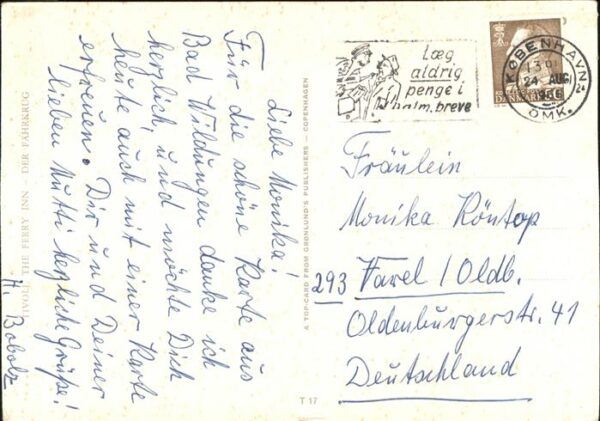 Liebe Monika!
Für die schöne Karte aus
Bad Wildungen danke ich
herzlich und möchte Dich
heute auch mit einer Karte
erfreuen. Dir und Deiner
lieben Mutti herzliche Grüße!
H. Bobolz
TIVOLI THE FERRY INN - DER FÄHRKRUG
A TOP-CARD FROM GRØNLUND'S PUBLISHERS — COPENHAGEN
T 17
Læg
aldrig
penge i
alm. breve
KØBENHAVN
24 AUG
1966
OMK.
DANMARK
Fräulein
Monika Röntop
293 Varel / Oldb.
Oldenburgerstr. 41
Deutschland